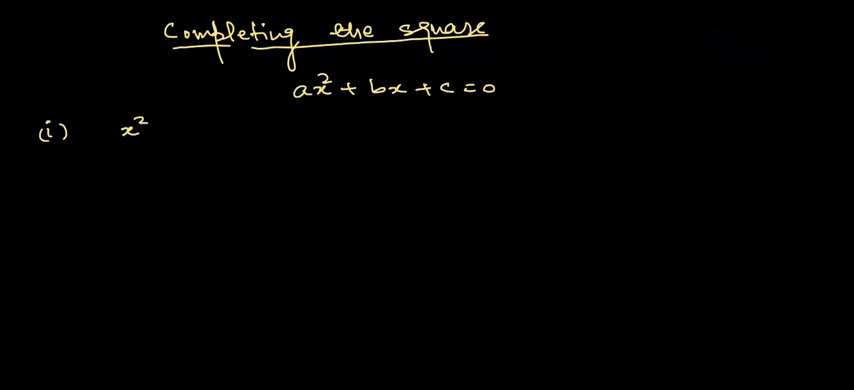 Completing the square
ax² + bx + c = 0
(i) x²